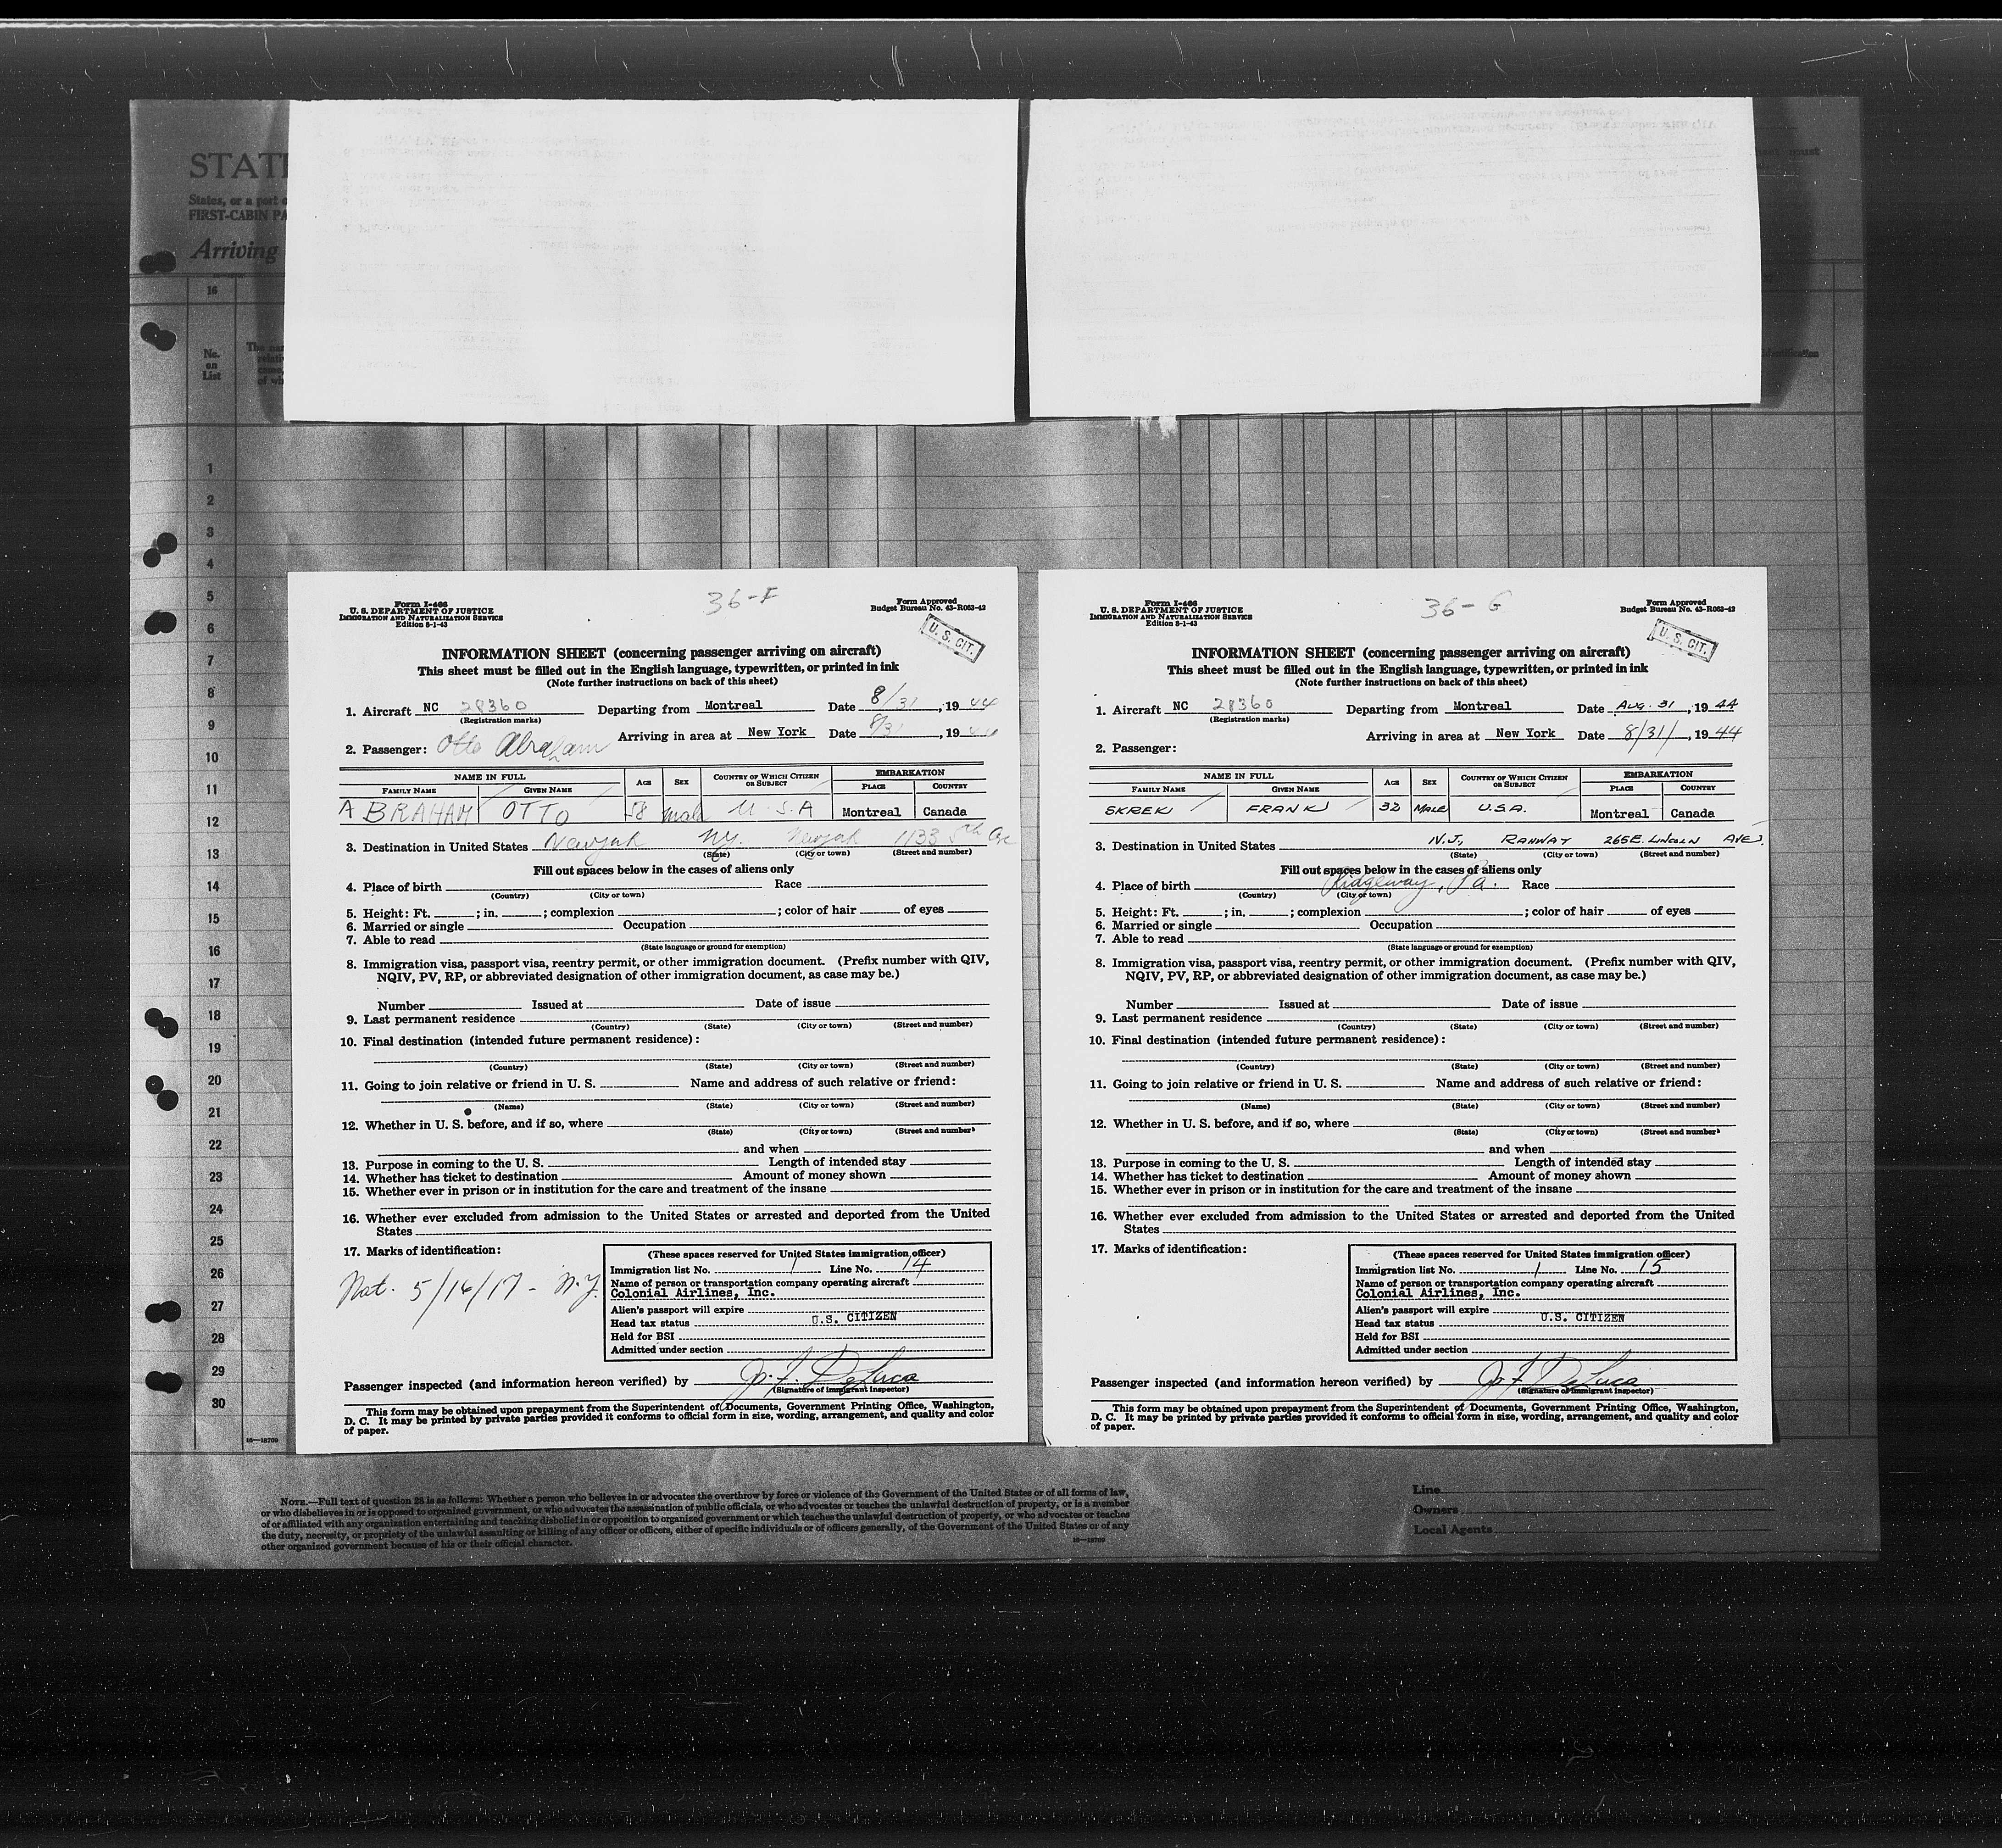 STAT
States, or a port o
FIRST-CABIN PA
Arriving
16
No.
on
List
1
2
3
4
5
6
7
8
9
10
11
12
13
14
15
16
17
18
19
20
21
22
23
24
25
26
27
28
29
30
16—18709
36-F
Form I-466
U. S. DEPARTMENT OF JUSTICE
IMMIGRATION AND NATURALIZATION SERVICE
Edition 8-1-43
Form Approved
Budget Bureau No. 43-R063-42
U. S. CIT.
INFORMATION SHEET (concerning passenger arriving on aircraft)
This sheet must be filled out in the English language, typewritten, or printed in ink
(Note further instructions on back of this sheet)
1. Aircraft NC 28360 Departing from Montreal Date 8/31, 19 44
(Registration marks)
Arriving in area at New York Date 8/31, 19 44
2. Passenger: Otto Abraham
NAME IN FULL AGE SEX COUNTRY OF WHICH CITIZEN OR SUBJECT EMBARKATION
FAMILY NAME GIVEN NAME PLACE COUNTRY
ABRAHAM OTTO 58 male U.S.A Montreal Canada
3. Destination in United States Newyork NY. Newyork 1133 5th Ave
(State) (City or town) (Street and number)
Fill out spaces below in the cases of aliens only
4. Place of birth Race
(Country) (City or town)
5. Height: Ft. ; in. ; complexion ; color of hair of eyes
6. Married or single Occupation
7. Able to read
(State language or ground for exemption)
8. Immigration visa, passport visa, reentry permit, or other immigration document. (Prefix number with QIV,
NQIV, PV, RP, or abbreviated designation of other immigration document, as case may be.)
Number Issued at Date of issue
9. Last permanent residence
(Country) (State) (City or town) (Street and number)
10. Final destination (intended future permanent residence):
(Country) (State) (City or town) (Street and number)
11. Going to join relative or friend in U. S. Name and address of such relative or friend:
(Name) (State) (City or town) (Street and number)
12. Whether in U. S. before, and if so, where
(State) (City or town) (Street and number)
and when
13. Purpose in coming to the U. S. Length of intended stay
14. Whether has ticket to destination Amount of money shown
15. Whether ever in prison or in institution for the care and treatment of the insane
16. Whether ever excluded from admission to the United States or arrested and deported from the United
States
17. Marks of identification:
Nat. 5/16/17 - N.Y.
(These spaces reserved for United States immigration officer)
Immigration list No. 1 Line No. 14
Name of person or transportation company operating aircraft
Colonial Airlines, Inc.
Alien's passport will expire
Head tax status U.S. CITIZEN
Held for BSI
Admitted under section
Passenger inspected (and information hereon verified) by Jo. F. DeLuca
(Signature of immigrant inspector)
This form may be obtained upon prepayment from the Superintendent of Documents, Government Printing Office, Washington,
D. C. It may be printed by private parties provided it conforms to official form in size, wording, arrangement, and quality and color
of paper.
36-G
Form I-466
U. S. DEPARTMENT OF JUSTICE
IMMIGRATION AND NATURALIZATION SERVICE
Edition 8-1-43
Form Approved
Budget Bureau No. 43-R063-42
U. S. CIT.
INFORMATION SHEET (concerning passenger arriving on aircraft)
This sheet must be filled out in the English language, typewritten, or printed in ink
(Note further instructions on back of this sheet)
1. Aircraft NC 28360 Departing from Montreal Date AUG. 31, 19 44
(Registration marks)
Arriving in area at New York Date 8/31/, 19 44
2. Passenger:
NAME IN FULL AGE SEX COUNTRY OF WHICH CITIZEN OR SUBJECT EMBARKATION
FAMILY NAME GIVEN NAME PLACE COUNTRY
SKREK FRANK 32 MALE U.S.A. Montreal Canada
3. Destination in United States N.J., RAHWAY 265 E. LINCOLN AVE.
(State) (City or town) (Street and number)
Fill out spaces below in the cases of aliens only
4. Place of birth Ridgeway, Pa. Race
(Country) (City or town)
5. Height: Ft. ; in. ; complexion ; color of hair of eyes
6. Married or single Occupation
7. Able to read
(State language or ground for exemption)
8. Immigration visa, passport visa, reentry permit, or other immigration document. (Prefix number with QIV,
NQIV, PV, RP, or abbreviated designation of other immigration document, as case may be.)
Number Issued at Date of issue
9. Last permanent residence
(Country) (State) (City or town) (Street and number)
10. Final destination (intended future permanent residence):
(Country) (State) (City or town) (Street and number)
11. Going to join relative or friend in U. S. Name and address of such relative or friend:
(Name) (State) (City or town) (Street and number)
12. Whether in U. S. before, and if so, where
(State) (City or town) (Street and number)
and when
13. Purpose in coming to the U. S. Length of intended stay
14. Whether has ticket to destination Amount of money shown
15. Whether ever in prison or in institution for the care and treatment of the insane
16. Whether ever excluded from admission to the United States or arrested and deported from the United
States
17. Marks of identification:
(These spaces reserved for United States immigration officer)
Immigration list No. 1 Line No. 15
Name of person or transportation company operating aircraft
Colonial Airlines, Inc.
Alien's passport will expire
Head tax status U.S. CITIZEN
Held for BSI
Admitted under section
Passenger inspected (and information hereon verified) by Jo. F. DeLuca
(Signature of immigrant inspector)
This form may be obtained upon prepayment from the Superintendent of Documents, Government Printing Office, Washington,
D. C. It may be printed by private parties provided it conforms to official form in size, wording, arrangement, and quality and color
of paper.
NOTE.—Full text of question 28 is as follows: Whether a person who believes in or advocates the overthrow by force or violence of the Government of the United States or of all forms of law,
or who disbelieves in or is opposed to organized government, or who advocates the assassination of public officials, or who advocates or teaches the unlawful destruction of property, or is a member
of or affiliated with any organization entertaining and teaching disbelief in or opposition to organized government or which teaches the unlawful destruction of property, or who advocates or teaches
the duty, necessity, or propriety of the unlawful assaulting or killing of any officer or officers, either of specific individuals or of officers generally, of the Government of the United States or of any
other organized government because of his or their official character.
16—18709
Line
Owners
Local Agents